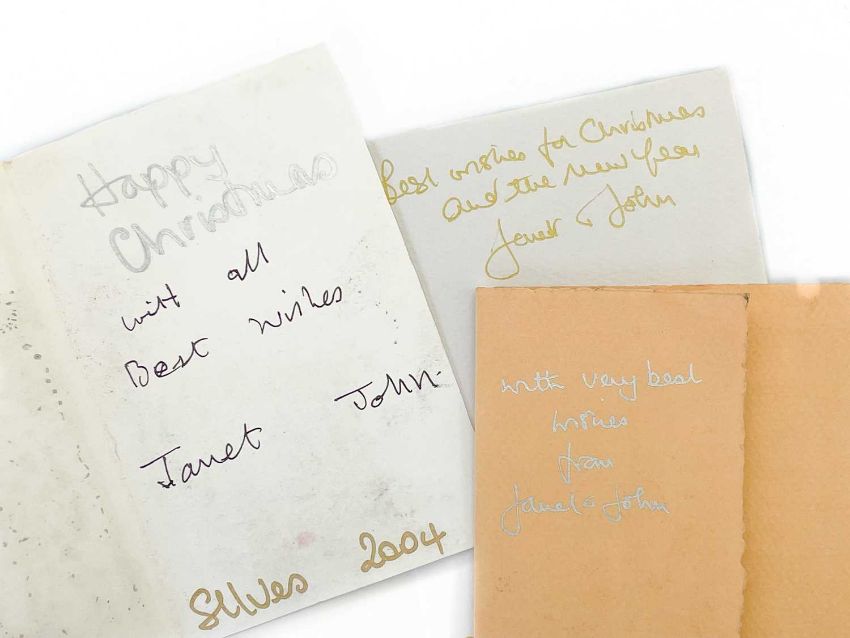 Happy
Christmas
with all
Best Wishes
Janet John.
Silves 2004
Best wishes for Christmas
and the New Year
Janet & John
with very best
wishes
from
Janet & John